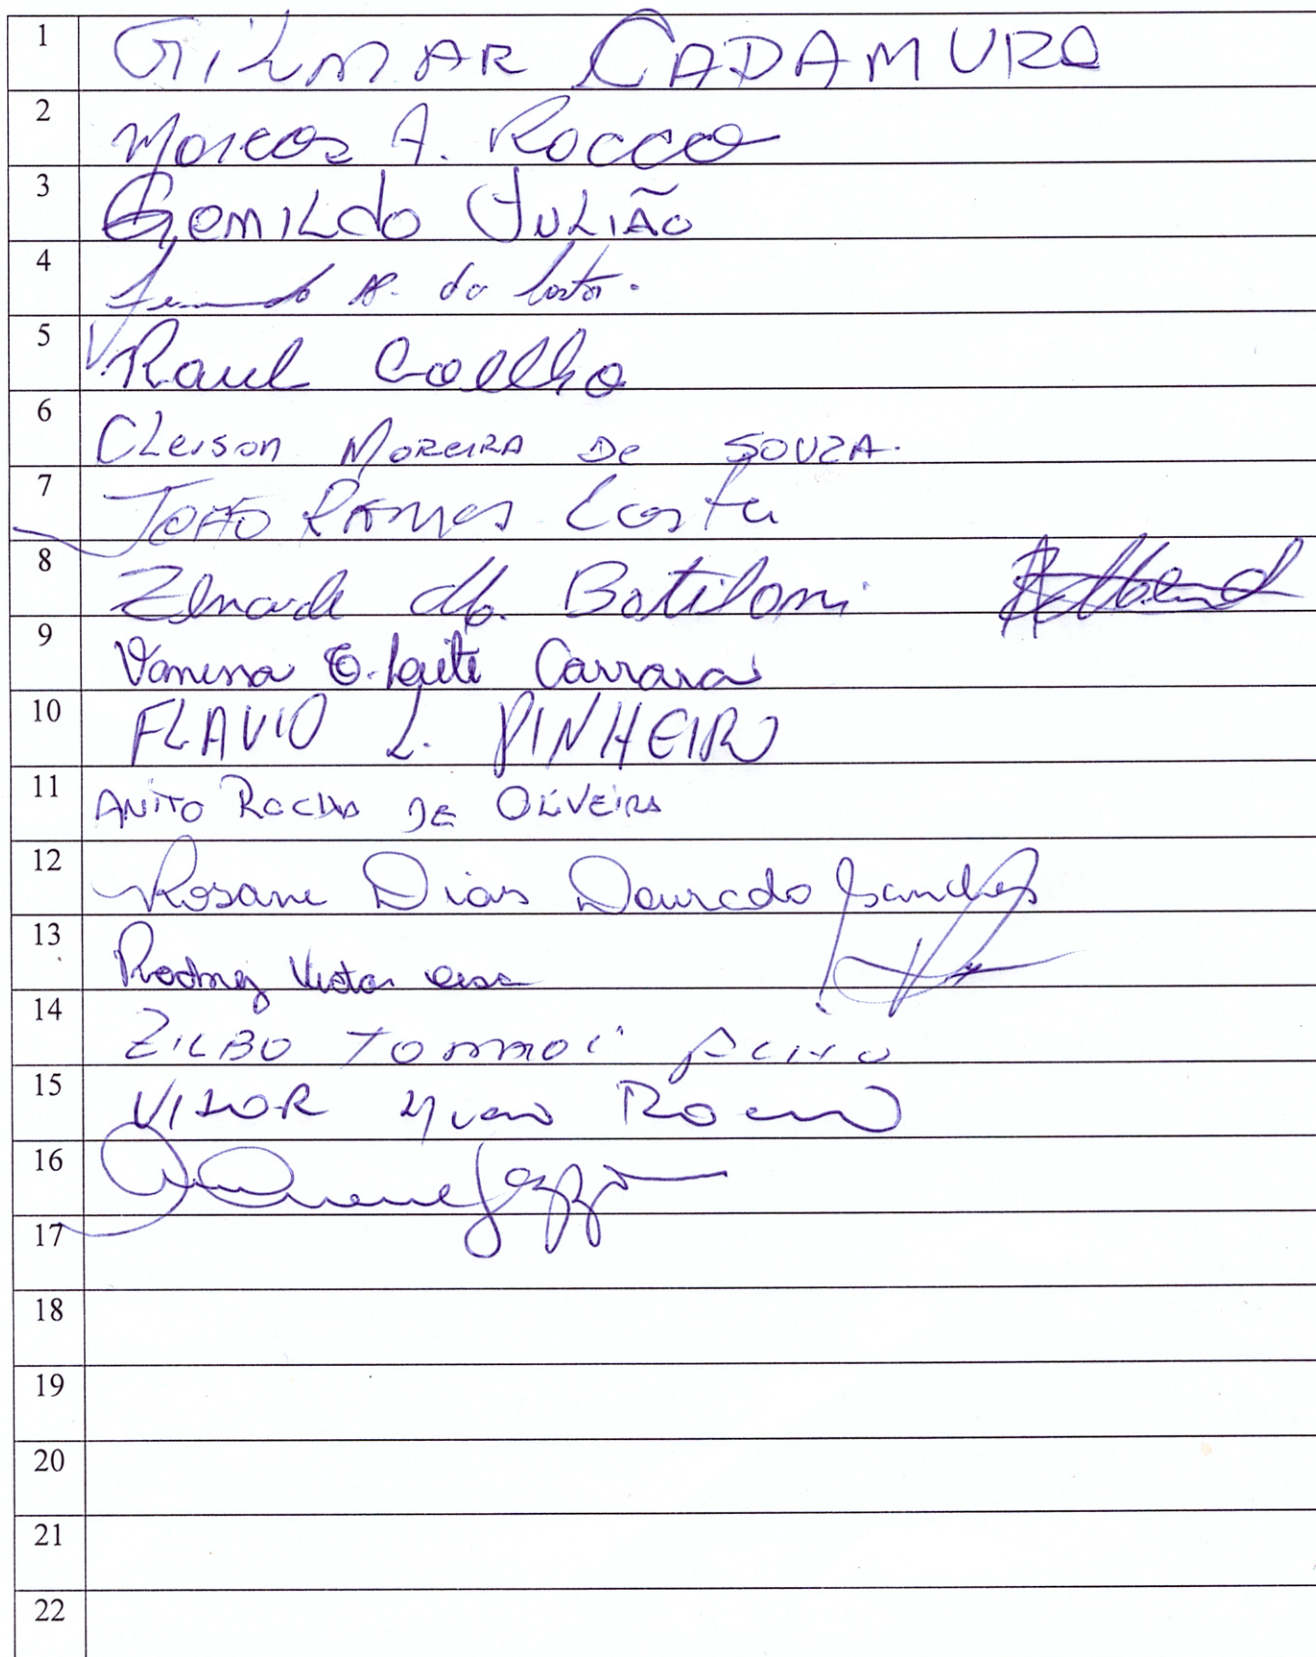 1 GILMAR CADAMURO
2 Marcos A. Rocco
3 GemILdo JULIÃO
4 A. da Costa.
5 Raul Coelho
6 CLeison MOREIRA De SOUZA.
7 JOÃO RAMOS Costa
8 Batiloni
9 Vanessa C. Leite Carrara
10 FLAVIO L. PINHEIRO
11 ANITO ROCHA DE OLIVEIRA
12 Rosane Dias Dourado Sanches
13 Rodney Victor
14 ZILBO
15
16
17
18
19
20
21
22